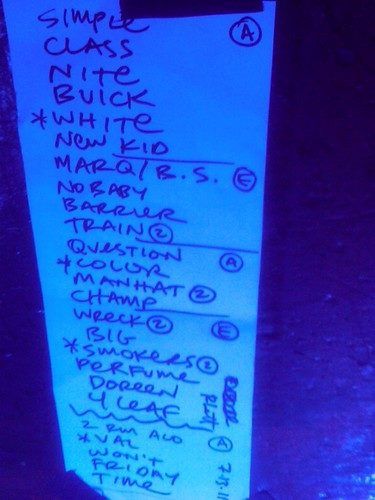 SIMPLE Ⓐ
CLASS
NITE
BUICK
*WHITE
NEW KID
MARQ/B.S. Ⓔ
NO BABY
BARRIER
TRAIN ②
QUESTION Ⓐ
*COLOR
MANHAT ②
CHAMP
WRECK ② Ⓔ
BIG
*SMOKERS ②
PERFUME
DOREEN
4 LEAF
2 RM ACO
*VAL
WON'T
FRIDAY
TIME
Ⓐ 7-15-11